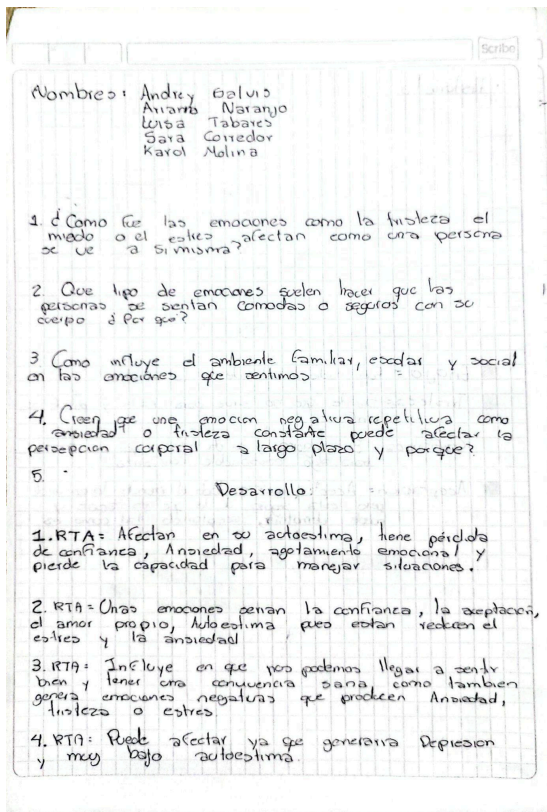 Scribe
Nombres: Andrey Galvis
Arianna Naranjo
Luisa Tabares
Sara Corredor
Karol Molina
1. ¿Como fue las emociones como la tristeza el
miedo o el estres afectan como una persona
se ve a si misma?
2. Que tipo de emociones suelen hacer que las
personas se sientan comodas o seguros con su
cuerpo ¿Por que?
3 Como influye el ambiente familiar, escolar y social
en las emociones que sentimos
4. Creen que una emocion negativa repetitiva como
ansiedad o tristeza constante puede afectar la
percepcion corporal a largo plazo y porque?
5.
Desarrollo:
1. RTA= Afectan en su autoestima, tiene pérdida
de confianca, Ansiedad, agotamiento emocional y
pierde la capacidad para manejar situaciones.
2. RTA= Unas emociones serian la confianca, la aceptación,
el amor propio, Autoestima pues estan reducen el
estres y la ansiedad
3. RTA: Incluye en que nos podemos llegar a sentir
bien y tener una convivencia sana, como tambien
genera emociones negativas que producen Ansiedad,
tristeza o estres.
4. RTA: Puede afectar ya que generaria Depresion
y muy bajo autoestima.